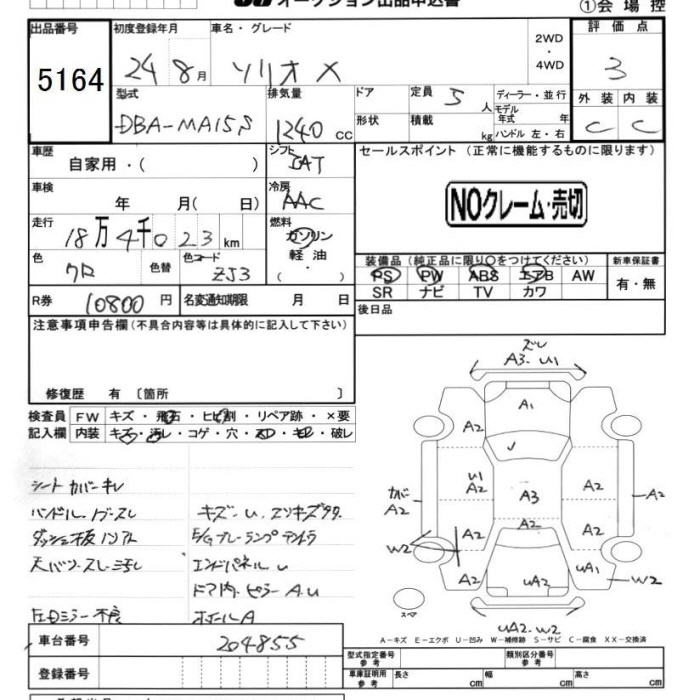 オークション出品申込書
①会場控
出品番号 初度登録年月 車名・グレード 2WD・4WD 評価点
5164 24 8月 ソリオ X 3
型式 排気量 ドア 定員 5人 ディーラー・並行 外装 内装
DBA-MA15S 1240cc 形状 積載 kg モデル年式 年 C C
ハンドル 左・右
車歴 シフト セールスポイント (正常に機能するものに限ります)
自家用・( ) IAT
車検 冷房 NOクレーム・売切
年 月( 日) AAC
走行 燃料
18万4千023km ガソリン
軽油・( )
色 色替 色コード 装備品(純正品に限り○をつけてください) 新車保証書
クロ ZJ3 PS PW ABS エアB AW 有・無
SR ナビ TV カワ
R券 10800円 名変通知期限 月 日 後日品
注意事項申告欄(不具合内容等は具体的に記入して下さい)
修復歴 有 〔箇所 〕
検査員記入欄 FW キズ・飛石・ヒビ割・リペア跡・×要
内装 キズ・汚レ・コゲ・穴・スレ・キレ・破レ
シートカバーキレ
ハンドル・ノブスレ キズ・U、エンキズタタ
ダッシュ板ノリアト
天バリ・スレ・ニゴレ エンドパネルU
ドア内・ピラーA.U
左Dミラー不良 ホイールA
ズレ
A3.U1
A1
A2
A2
U1
A2
A2
カバー
A2
A3
A2
A2
W2
A2
A2
A2
A2
UA2
UA1
W2
スペア
UA2.W2
A-キズ E-エクボ U-凹み W-補修跡 S-サビ C-腐食 XX-交換済
車台番号 204855
登録番号
型式指定番号 参考 類別区分番号 参考
車庫証明用 参考 長さ cm 幅 cm 高さ cm